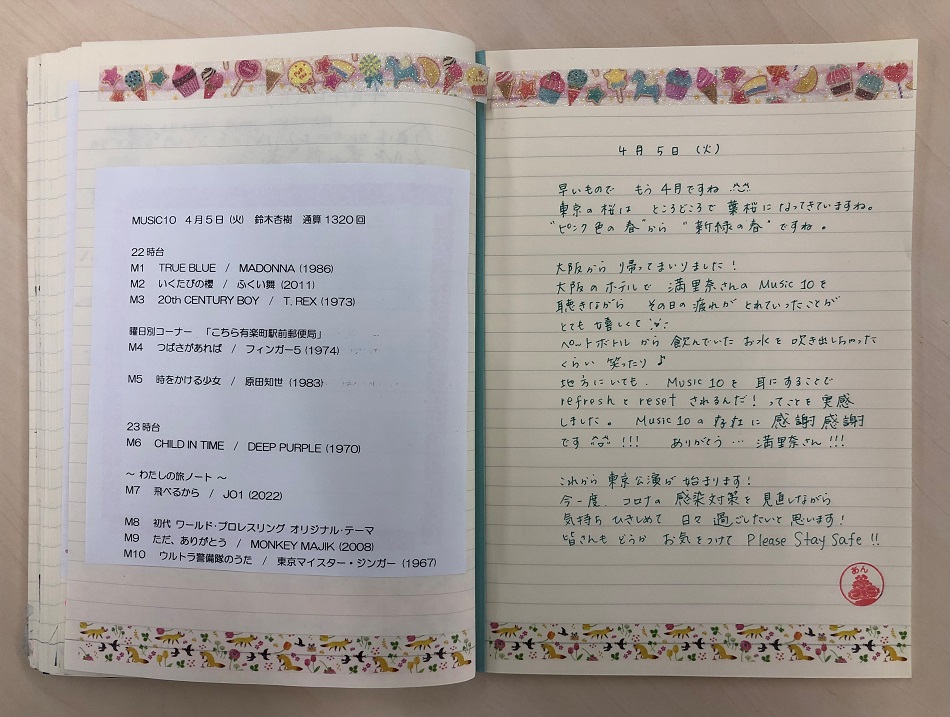 MUSIC10 4月5日(火) 鈴木杏樹 通算1320回
22時台
M1 TRUE BLUE / MADONNA (1986)
M2 いくたびの櫻 / ふくい舞 (2011)
M3 20th CENTURY BOY / T. REX (1973)
曜日別コーナー 「こちら有楽町駅前郵便局」
M4 つばさがあれば / フィンガー5 (1974)
M5 時をかける少女 / 原田知世 (1983)
23時台
M6 CHILD IN TIME / DEEP PURPLE (1970)
～ わたしの旅ノート ～
M7 飛べるから / JO1 (2022)
M8 初代 ワールド・プロレスリング オリジナル・テーマ
M9 ただ、ありがとう / MONKEY MAJIK (2008)
M10 ウルトラ警備隊のうた / 東京マイスター・ジンガー (1967)
4月5日 (火)
早いもので もう4月ですね
東京の桜は ところどころで 葉桜になってきていますね。
"ピンク色の春"から "新緑の春"ですね。
大阪から 帰ってまいりました!
大阪のホテルで 満里奈さんの Music 10を
聴きながら その日の疲れが とれていったことが
とても 嬉しくて
ペットボトルから 飲んでいた お水を 吹き出しちゃった
くらい 笑ったり♪
地方にいても、Music 10を 耳にすることで
refreshと reset されるんだ! ってことを 実感
しました。 Music 10の 存在に 感謝 感謝
です !!! ありがとう… 満里奈さん!!!
これから 東京公演が 始まります!
今一度、コロナの 感染対策を 見直しながら
気持ち ひきしめて 日々 過ごしたいと 思います!
皆さんも どうか お気をつけて Please Stay Safe !!
あん